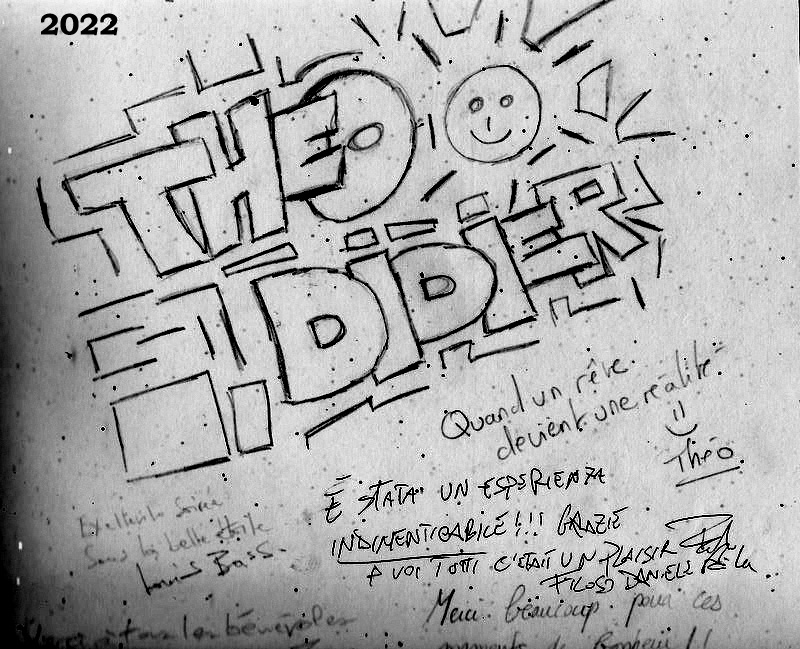 2022
THEO
DIDIER
Quand un rêve
devient une réalité.
Théo.
È STATA UN ESPERIENZA
INDIMENTICABILE!!! GRAZIE
A VOI TUTTI C'ÉTAIT UN PLAISIR
FILOSO DANIELE
Excellente soirée
Sous la belle étoile
Louis Bass.
Merci à tous les bénévoles
Merci beaucoup pour ces
moments de bonheur!!